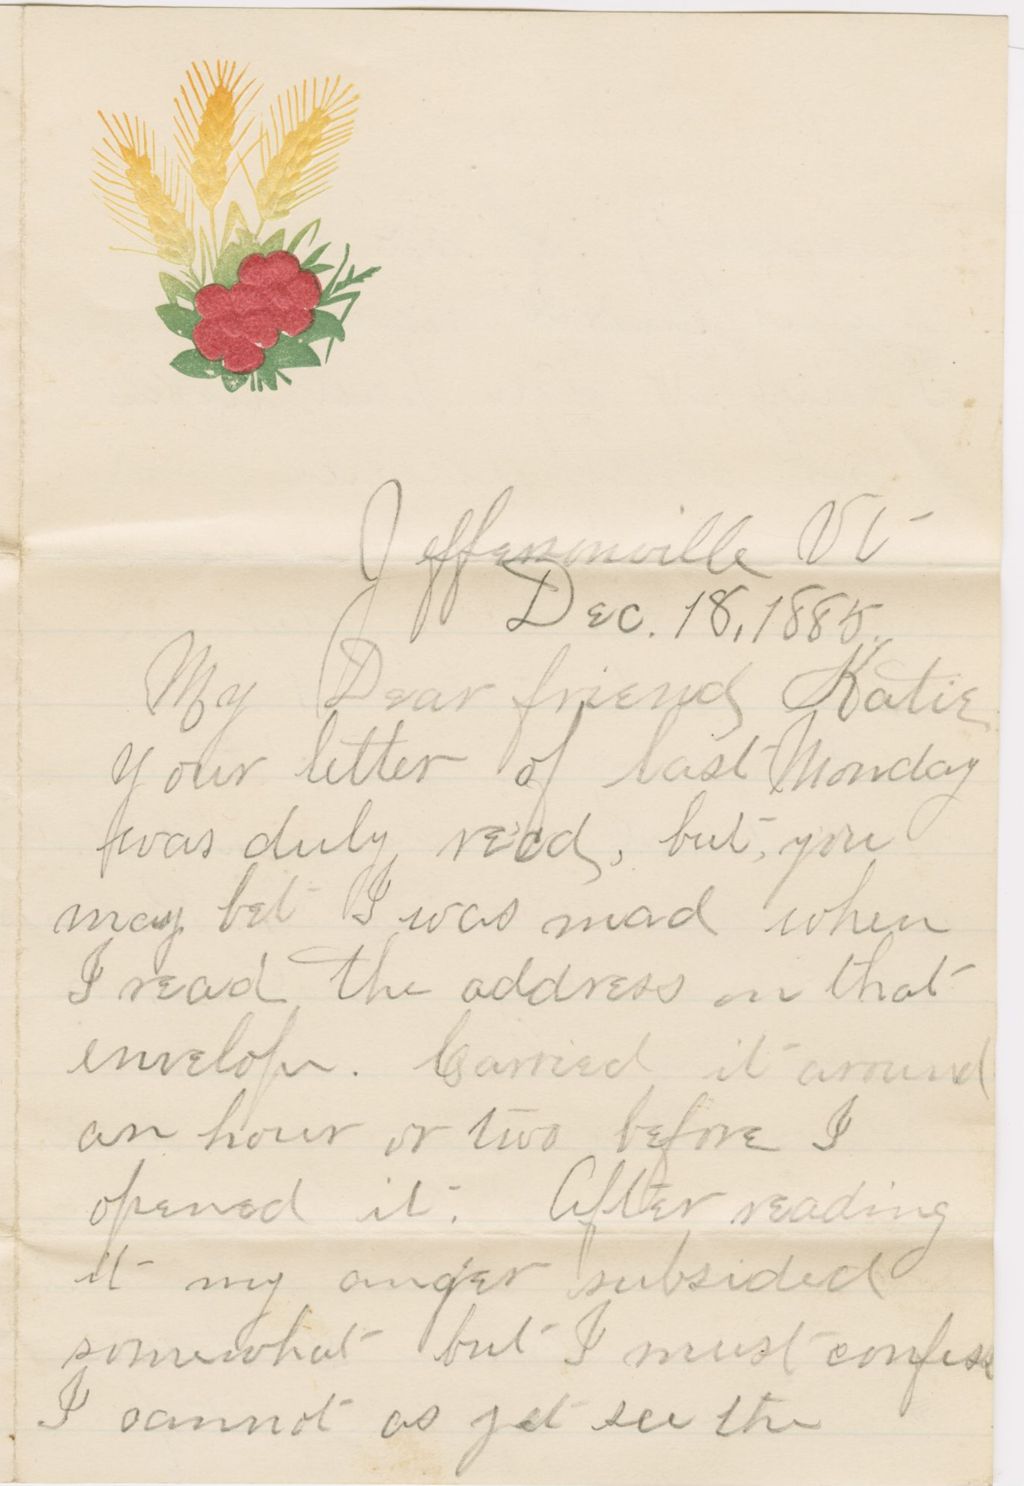 Jeffersonville Vt
Dec. 18, 1885.
My Dear friend Katie
Your letter of last Monday
was duly recd, but, you
may bet I was mad when
I read the address on that
envelope. Carried it around
an hour or two before I
opened it. After reading
it my anger subsided
somewhat but I must confess
I cannot as yet see the